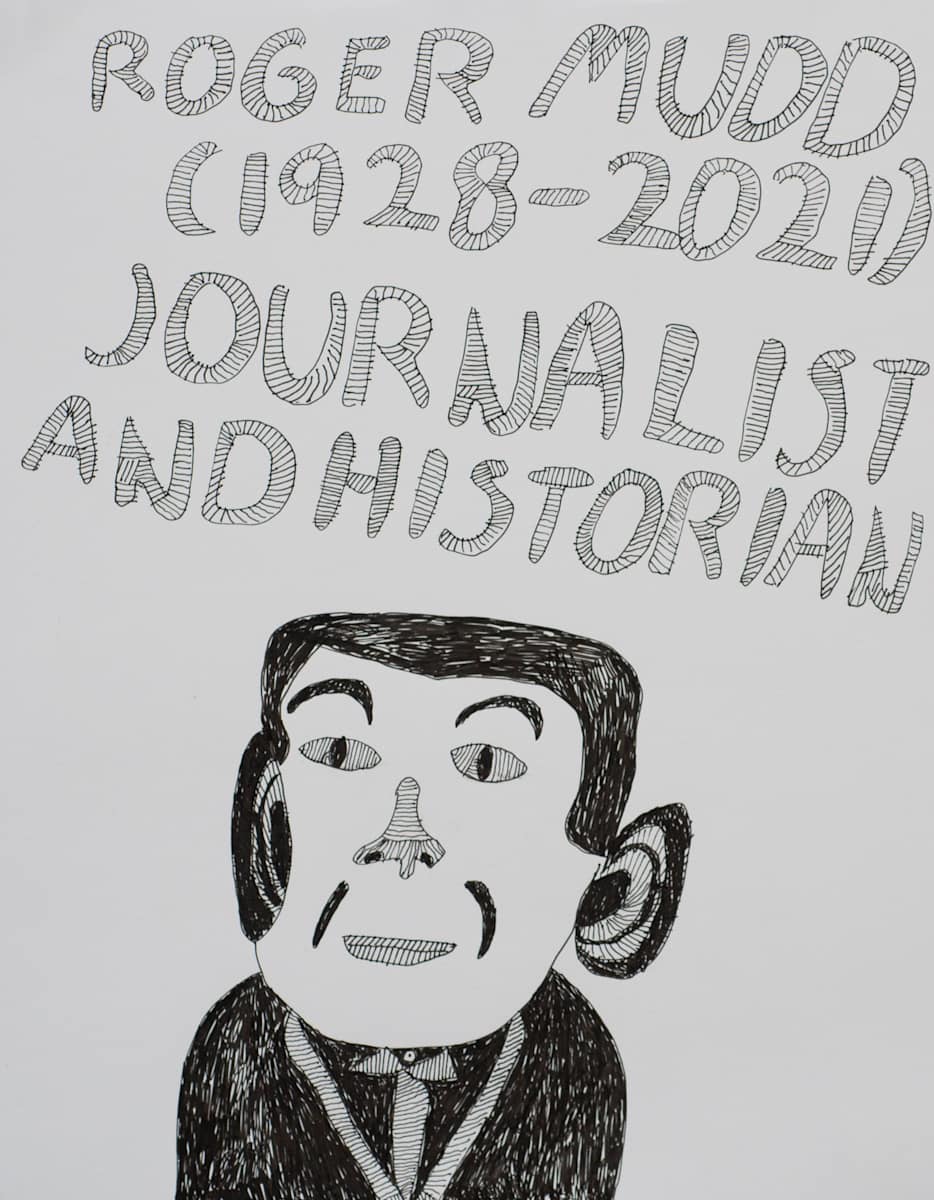 ROGER MUDD
(1928-2021)
JOURNALIST
AND HISTORIAN